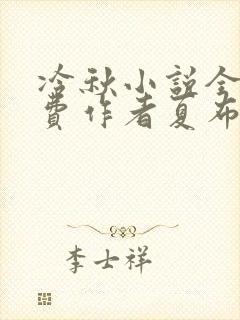 冷秋小説全
費作者夏布
李士祥